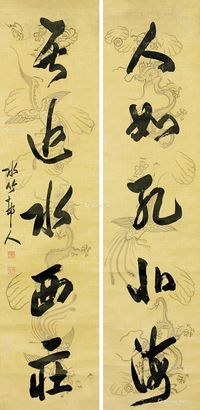 人如孔北海
居近水西庄
水竹邨人